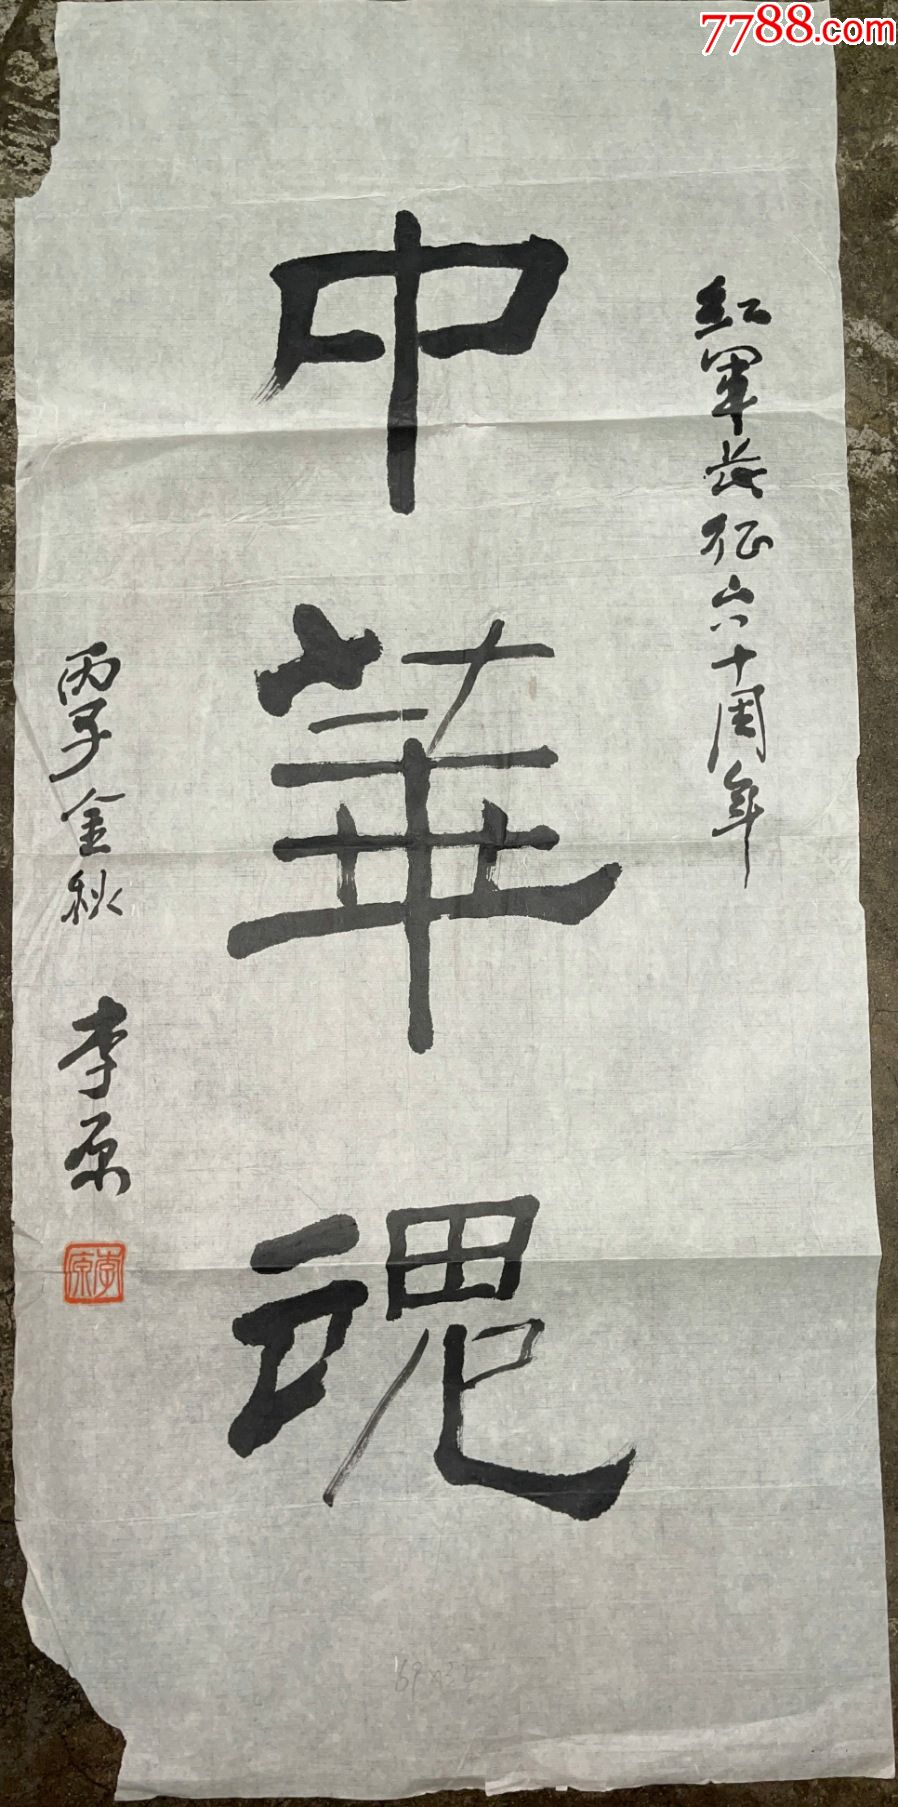 7788.com
红軍长征六十周年
中華魂
丙子金秋
李原
李原
69×33